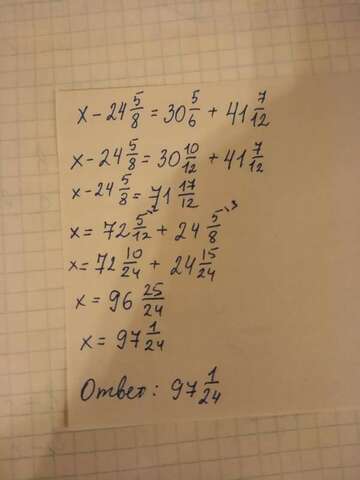 x - 24 5/8 = 30 5/6 + 41 7/12
x - 24 5/8 = 30 10/12 + 41 7/12
x - 24 5/8 = 71 17/12
x = 72 5/12 \2 + 24 5/8 \3
x = 72 10/24 + 24 15/24
x = 96 25/24
x = 97 1/24
Ответ: 97 1/24